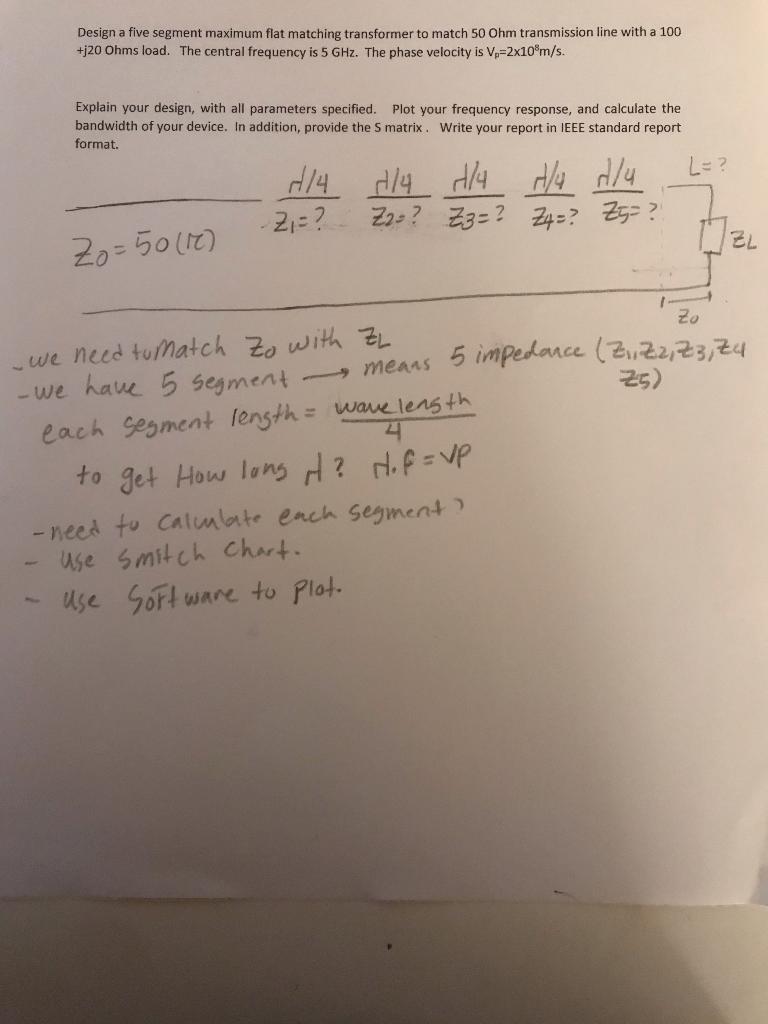 Design a five segment maximum flat matching transformer to match 50 Ohm transmission line with a 100
+j20 Ohms load. The central frequency is 5 GHz. The phase velocity is Vₚ=2x10⁸m/s.
Explain your design, with all parameters specified. Plot your frequency response, and calculate the
bandwidth of your device. In addition, provide the S matrix . Write your report in IEEE standard report
format.
λ/4 λ/4 λ/4 λ/4 λ/4 L=?
Z1=? Z2=? Z3=? Z4=? Z5=?
Z0=50(Ω) ZL
Z0
- we need to Match Z0 with ZL
- we have 5 segment → means 5 impedance (Z1,Z2,Z3,Z4
Z5)
each segment length = wave length
4
to get How long λ? λ.f=VP
- need to Calculate each segment?
- Use Smitch Chart.
- Use Software to Plot.